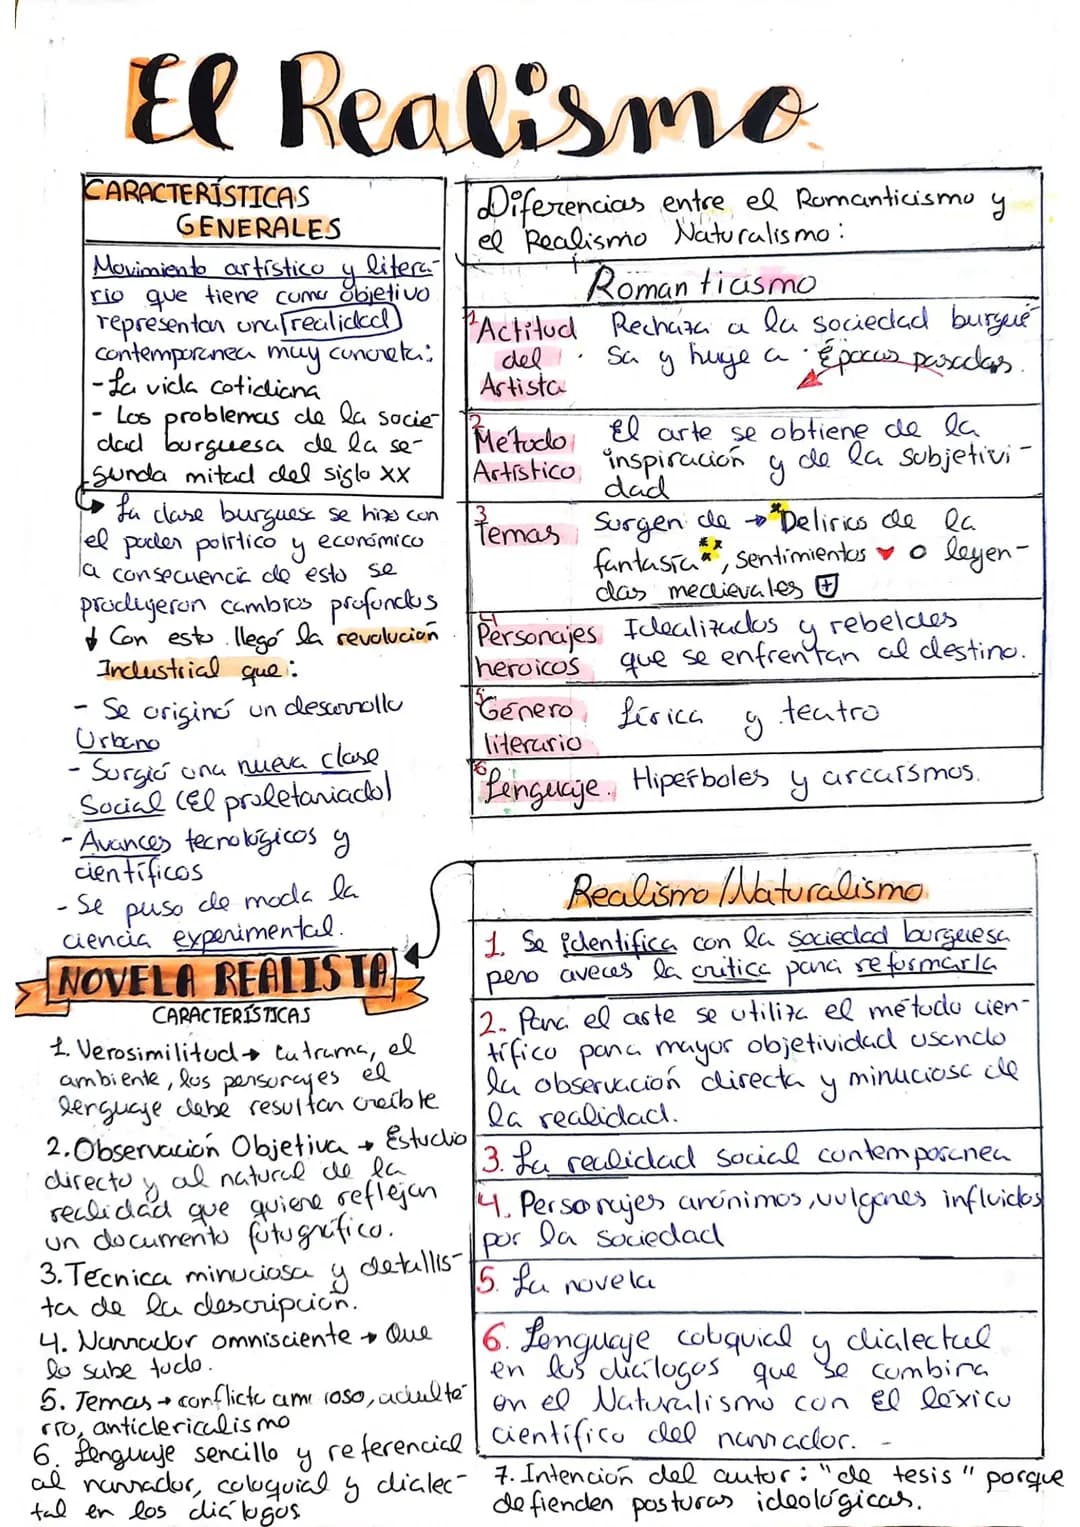 El Realismo.
CARACTERÍSTICAS
GENERALES
Movimiento artístico y litera-
rio que tiene como objetivo
representar una realidad
contemporanea muy concreta:
- La vida cotidiana
- Los problemas de la socie-
dad burguesa de la se-
gunda mitad del siglo XX
La clase burguesa se hizo con
el poder político y económico
a consecuencia de esto se
produjeron cambios profundos
Con esto llegó la revolución
Industrial que:
- Se originó un desarrollo
Urbano
- Surgió una nueva clase
Social (El proletariado)
- Avances tecnológicos y
científicos
- Se puso de moda la
ciencia experimental.
NOVELA REALISTA
CARACTERÍSTICAS
1. Verosimilitud → La trama, el
ambiente, los personajes el
lenguaje debe resultar creíble
2. Observación Objetiva → Estudio
directo y al natural de la
realidad que quiere reflejar
un documento fotográfico.
3. Técnica minuciosa y detallis-
ta de la descripción.
4. Narrador omnisciente → Que
lo sabe todo.
5. Temas → conflicto amoroso, adulte
rio, anticlericalismo
6. Lenguaje sencillo y referencial
al narrador, coloquial y dialec-
tal en los diálogos
Diferencias entre el Romanticismo y
el Realismo Naturalismo:
Romanticismo
1 Actitud del Artista Rechaza a la sociedad burgue
sa y huye a Épocas pasadas.
2 Método Artístico El arte se obtiene de la
inspiración y de la subjetivi-
dad
3 Temas Surgen de → Delirios de la
fantasía, sentimientos ♥ o leyen-
das medievales
4 Personajes heroicos Idealizados y rebeldes
que se enfrentan al destino.
5 Género literario Lírica y teatro
6 Lenguaje. Hiperboles y arcaísmos.
Realismo/Naturalismo
1. Se identifica con la sociedad burguesa
pero aveces la critica para reformarla
2. Para el arte se utiliza el método cien-
tífico para mayor objetividad usando
la observación directa y minuciosa de
la realidad.
3. La realidad social contemporanea
4. Personajes anónimos, vulgares influidos
por la sociedad
5. La novela
6. Lenguaje coloquial y dialectal
en los diálogos que se combina
en el Naturalismo con el léxico
científico del narrador. -
7. Intención del autor: "de tesis" porque
defienden posturas ideológicas.